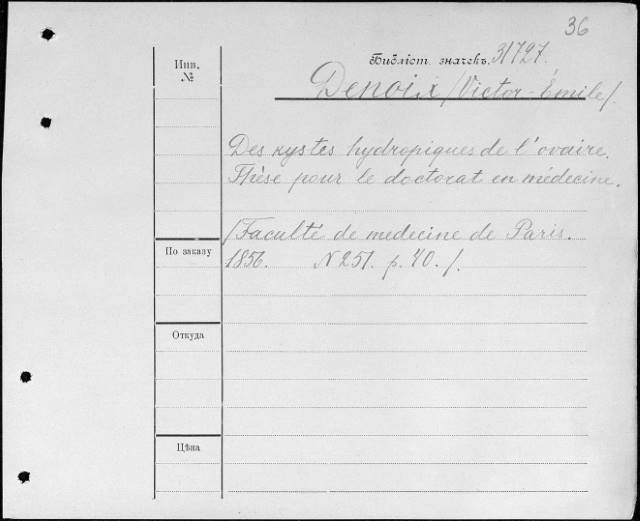 36
Инв.
№
Библіот. значекъ. 31727.
Denoix /Victor-Émile/.
Des kystes hydropiques de l'ovaire.
Thèse pour le doctorat en médecine.
/Faculté de medecine de Paris.
По заказу
1856. N 251. p. 40. /.
Откуда
Цѣна